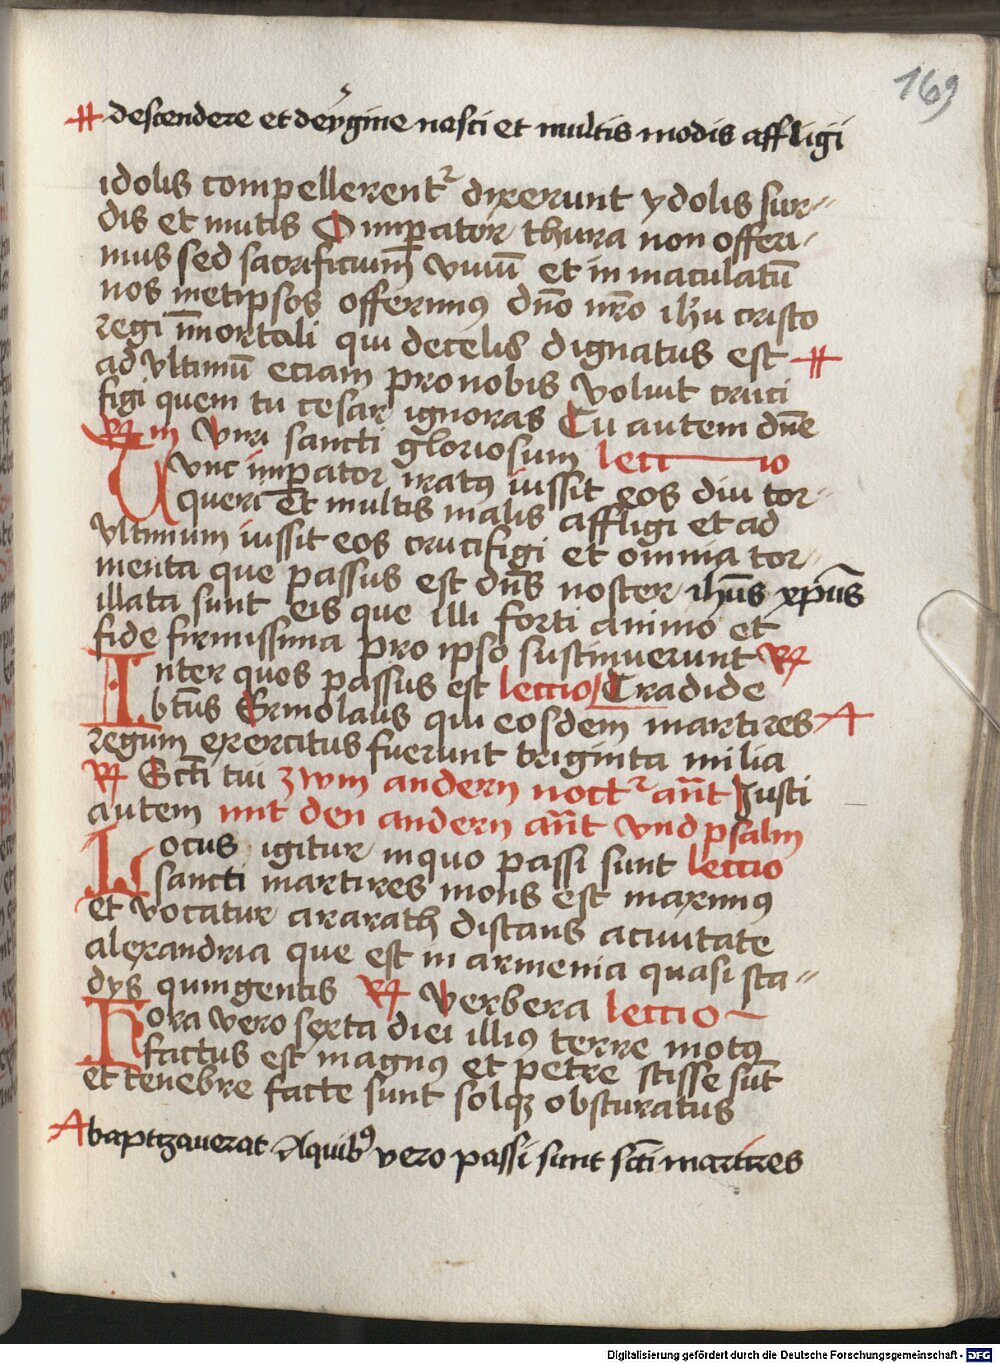 169
descendere et de v̓gine nasci et multis modis affligi
idolis compellerent᷑ dixerunt ydolis sur-
dis et mutis O imꝑator thura non offeri-
mus sed sacrificium̄ viuū et in maculatū
nos metipsos offerimꝰ dn̄o nr̄o ih̄u cristo
regi īmortali qui de celis dignatus est
ad vltimū eciam pro nobis voluit cruci
figi quem tu cesar ignoras Tu autem dn̄e
℟m Viri sancti gloriosum lectio
Tunc imꝑator iratꝰ iussit eos diu tor-
queri Et multis malis affligi et ad
vltimum iussit eos crucifigi et omnia tor-
menta que passus est dn̄s noster ih̄us xp̄us
illata sunt eis que illi forti animo et
fide firmissima pro ipso sustinuerunt ℟
Inter quos passus est lectio Tradide
bt̄us Ermolaus qui eosdem martires
regum exercitus fuerunt triginta milia
℟ Sct̄i tui zwm andern noct᷑ an̄t Justi
autem mit den andern an̄t vnd psalm
Locus igitur in quo passi sunt lectio
sancti martires mons est maximꝰ
et vocatur ararath distans a ciuitate
alexandria que est in armenia quasi sta-
dys quingentis ℟ Verbera lectio
Hora vero sexta diei illiꝰ terre motꝰ
factus est magnꝰ et petre scisse sūt
et tenebre facte sunt solqꝫ obscuratus
baptizauerat A quibꝰ vero passi sunt sct̄i martires
Digitalisierung gefördert durch die Deutsche Forschungsgemeinschaft - DFG